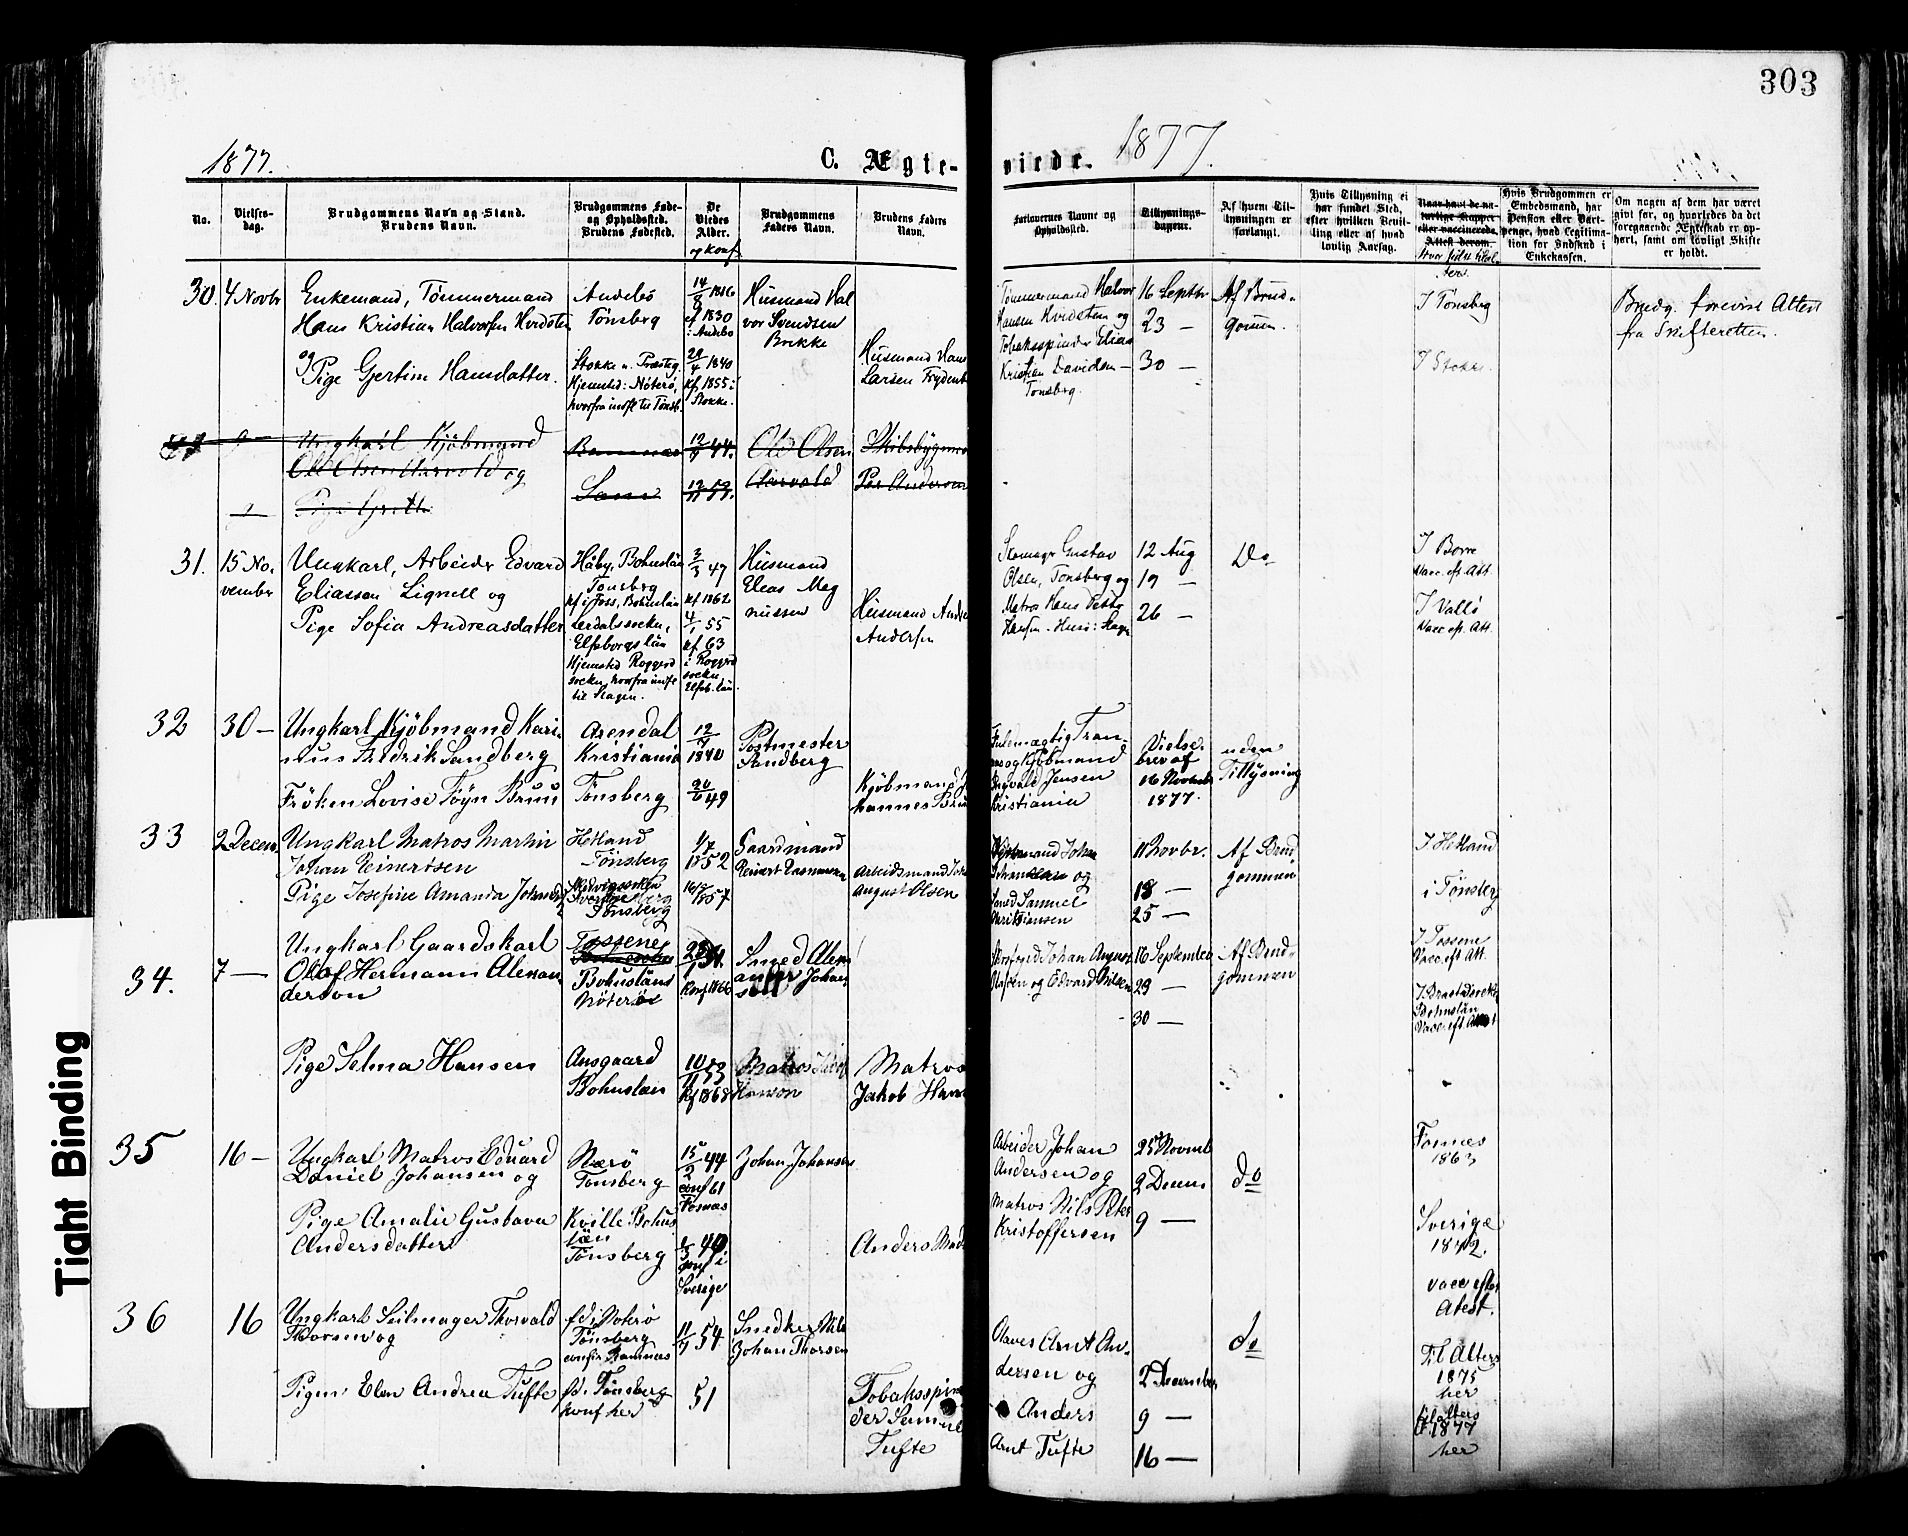 303
1877.
C. Ægte-
viede.
1877.
No.
Vielses-
dag.
Brudgommens Navn og Stand.
Brudens Navn.
Brudgommens Føde-
og Opholdssted.
Brudens Fødested.
De
Viedes
Alder.
og konf.
Brudgommens
Faders Navn.
Brudens Faders
Navn.
Forlovernes Navne og
Opholdssted.
Tillysnings-
dagene.
Af hvem Til-
lysningen er
forlangt.
Hvis Tillysning ei
har fundet Sted,
efter hvilken Bevil-
ling eller af hvad
lovlig Aarsag.
Naar havt de na-
turlige Kopper
eller vaccinerede.
Attest derom.
Hvis Brudgommen er
Embedsmand, har
Pension eller Vart-
penge, hvad Legitima-
tion for Indskud i
Enkekassen.
Om nogen af dem har været
gift før, og hvorledes da det
foregaaende Ægteskab er op-
hørt, samt om lovligt Skifte
er holdt.
30. 4 Novbr
Enkemand, Tømmermand
Hans Kristian Halvorsen Hvidsten
og
Pige Gjertine Hansdatter.
Andebo
Tønsberg
Stokke n. Præsteg.
Hjemsted: Nøterø,
hvorfra indfl. til Tønsb.
14/8 1816
kf 1830
i Andebo
1840
kf 1855 i
Stokke.
Husmand Hal
vor Svendsen
Brekke
Husmand Hans
Larsen Frydenb
Tømmermand Halvor
Hansen Hvidsten og
Tobaksspinder Elias
Kristian Davidsen
Tønsberg.
16 Septbr
23 —
30 —
Af Brud-
gommen.
I Tønsberg
I Stokke.
Brudg. foreviste Attest
fra Skifteretten.
Ungkarl Kjøbmand
Ole Olsen Aarvold og
12 44.
Ole Olsen
Aarvold
Skibsbygme
Per Anderson
31. 15 No-
vember
Ungkarl, Arbeider Edvard
Eliassen Lignell og
Pige Sofia Andreasdatter
Håby, Bohuslän
Tønsberg
kf i Foss, Bohuslän
Lerdals socken,
Elfsborgs län
Hjemsted Roggerd
socken, hvorfra indfl
til Slagen.
3/3 47
kf 1862
4/1 55
kf 63
i Roggerd
socken
Elfsb. län.
Husmand
Eleas Mag
nussen
Husmand Andre
Andersen
Skomager Gustav
Olsen, Tønsberg og
Matros Hans Petter
Hansen - Husø i Slagen
12 Aug
19 —
26 —
Do
I Borre
Vacc. eft. Att.
I Vallø
Vacc. eft. Att.
32 30 —
Ungkarl Kjøbmand Kari-
nus Fredrik Sandberg
Frøken Lovise Føyn Bruun
Arendal
Kristiania
Tønsberg
12/7
1840
49
Postmester
Sandberg
Kjøbmand Jo
hannes Bruun
Kjøbmand
Ingvald Jensen
Kristiania
Vielse-
brev af
16 Novembr
1877.
uden
Tillysning
33 2 Decem.
Ungkarl Matros Martin
Johan Reinertsen
Pige Josefine Amanda Johansd
Hetland
Tønsberg
Tønsberg
1/7
1852
1857
Gaardmand
Reinert Rasmussen
Arbeidsmand Joh
August Olsen
og
Smed Samuel
Christiansen
11 Novbr.
18 —
25 —
Af Brud-
gommen
I Hetland
i Tønsberg
34. 7 —
Ungkarl Gaardskarl
Olof Hermann Alexan
derson
Pige Selma Hansen
Tossene
Bohusläns
Nøterøe
Ansgaard
Bohuslän
Konf 1866
10/11 53
Kf 1868
Smed Alex
ander Johan
Matros
Hanson
Matros
Jakob Hans
Johan August
Olafsen og Edvard Nilsen
16 September
23 —
30 —
Af Brud-
gommen
I Tossene
Vacc. eft Att.
Bohuslän
Vacc. eft Att
35 16 —
Ungkarl Matros Eduard
Daniel Johansen og
Pige Amalie Gustava
Andersdatter
Nærø
Tønsberg
Kville Bohus
län
Tønsberg
15/2 44
conf 61
Fosnæs
conf i
Sverige
Johan Johansen
Anders
Arbeider Johan
Andersen og
Matros Nils Peter
Kristoffersen
25 Novmb
2 Decem.
9 —
do
Fosnæs
1863
Sverige
vacc efter
Atest.
36 16
Ungkarl Seilmager Thorvald
Thorsen og
Pigen Elen Andrea Tufte
fd. i Noterø
Tønsberg
conf in Ramnes
fd. i Tønsberg
konf her
11/9 54
51
Snedker Nils
Johan Thorsen
Tobaksspin
der Samuel
Tufte
Claves Arnt An-
dersen og
Anders
Arnt Tufte
2 December
9 —
16 —
do
Til Alters
1875
her
til alters
1877
her
Tight Binding